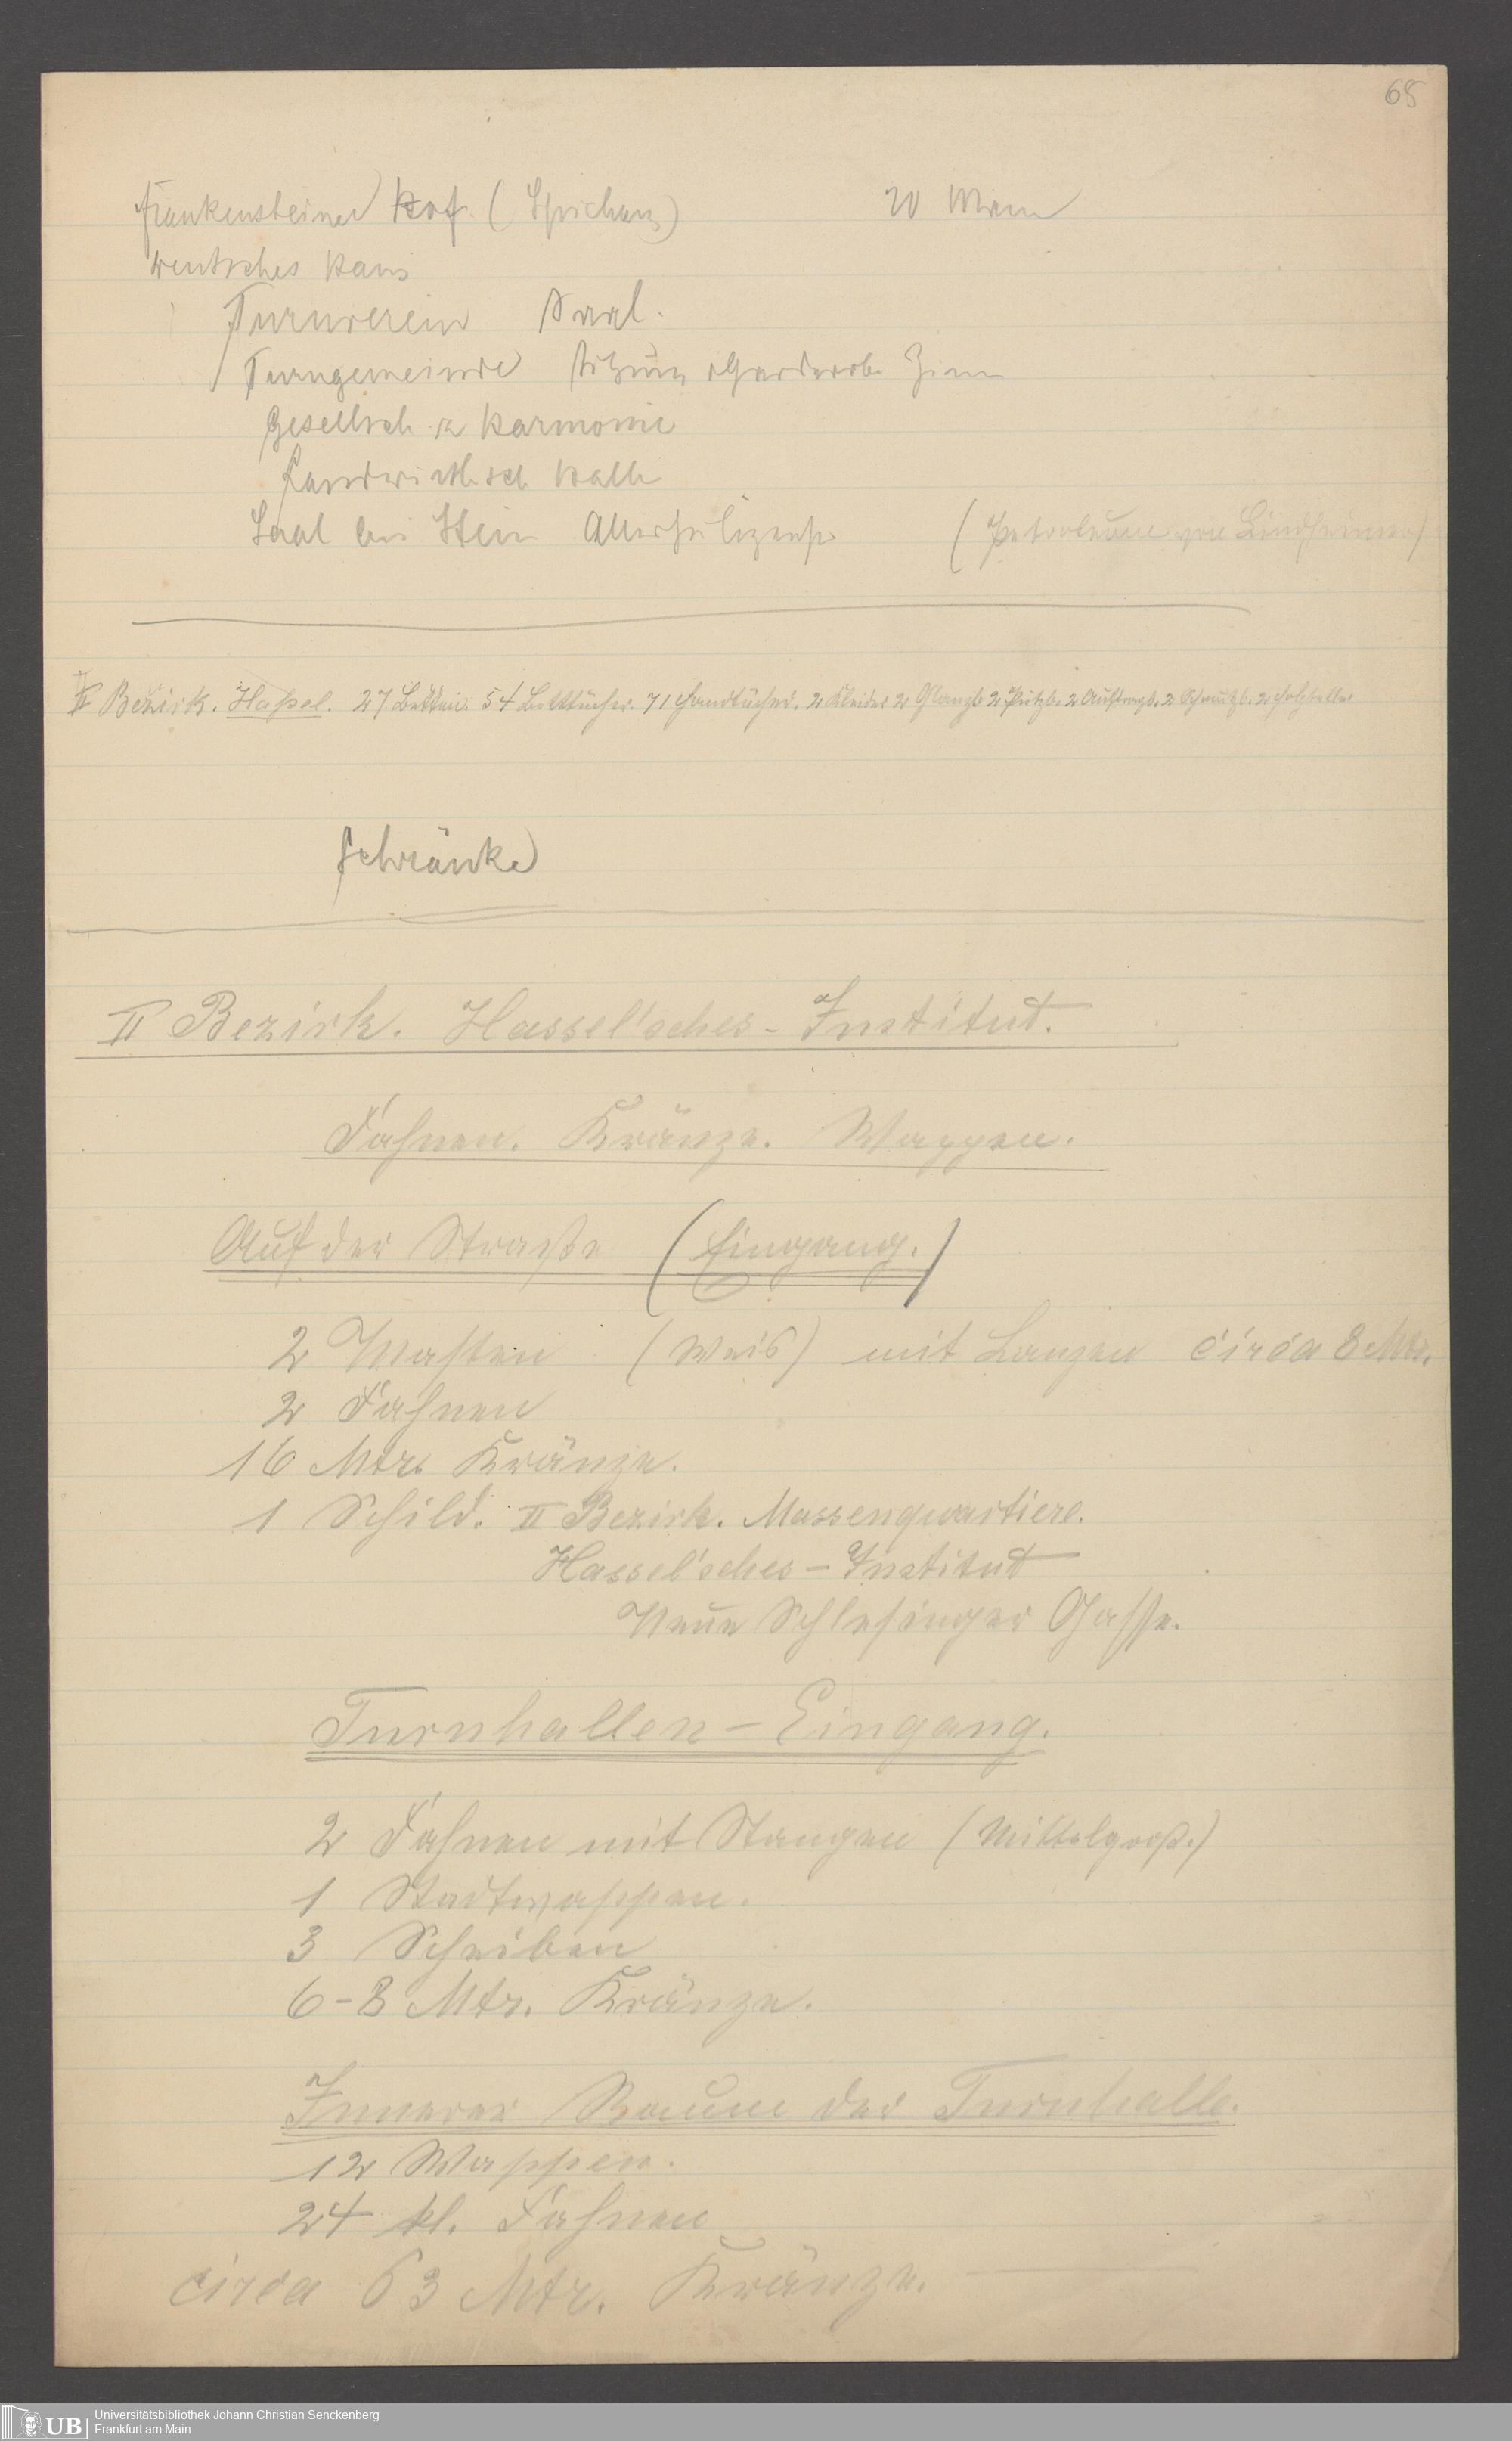 68
Frankensteiner Hof. ( 20 Mann
Deutsches Haus
Turnverein Saal.
Turngemeinde Garderobe Zim
Gesellsch. z Harmonie
Landwirthsch Halle
Saal bei Stein (Petroleum von Lindheimer)
II Bezirk. Haßel. 27 Betten. 54 Betttücher. 71 Handtücher. 2 Kleider 2 Glanzb 2 Putzb. 2 Auftragb. 2 Schmutzb.
Schränke
II Bezirk. Hassel'sches-Institut.
Fahnen. Kränze. Wappen.
Auf der Straße (Eingang.)
2 Masten (Weiß) mit Lanzen circa 8 Mtr.
2 Fahnen
16 Mtr. Kränze.
1 Schild. II Bezirk. Massenquartiere.
Hassel'sches-Institut
Neue Schlesinger Gasse.
Turnhallen-Eingang.
2 Fahnen mit Stangen (Mittelgroß.)
1 Stadtwappen.
3 Scheiben
6-8 Mtr. Kränze.
Innerer Raum der Turnhalle.
12 Wappen.
24 kl. Fahnen
circa 63 Mtr. Kränze.
UB Universitätsbibliothek Johann Christian Senckenberg
Frankfurt am Main